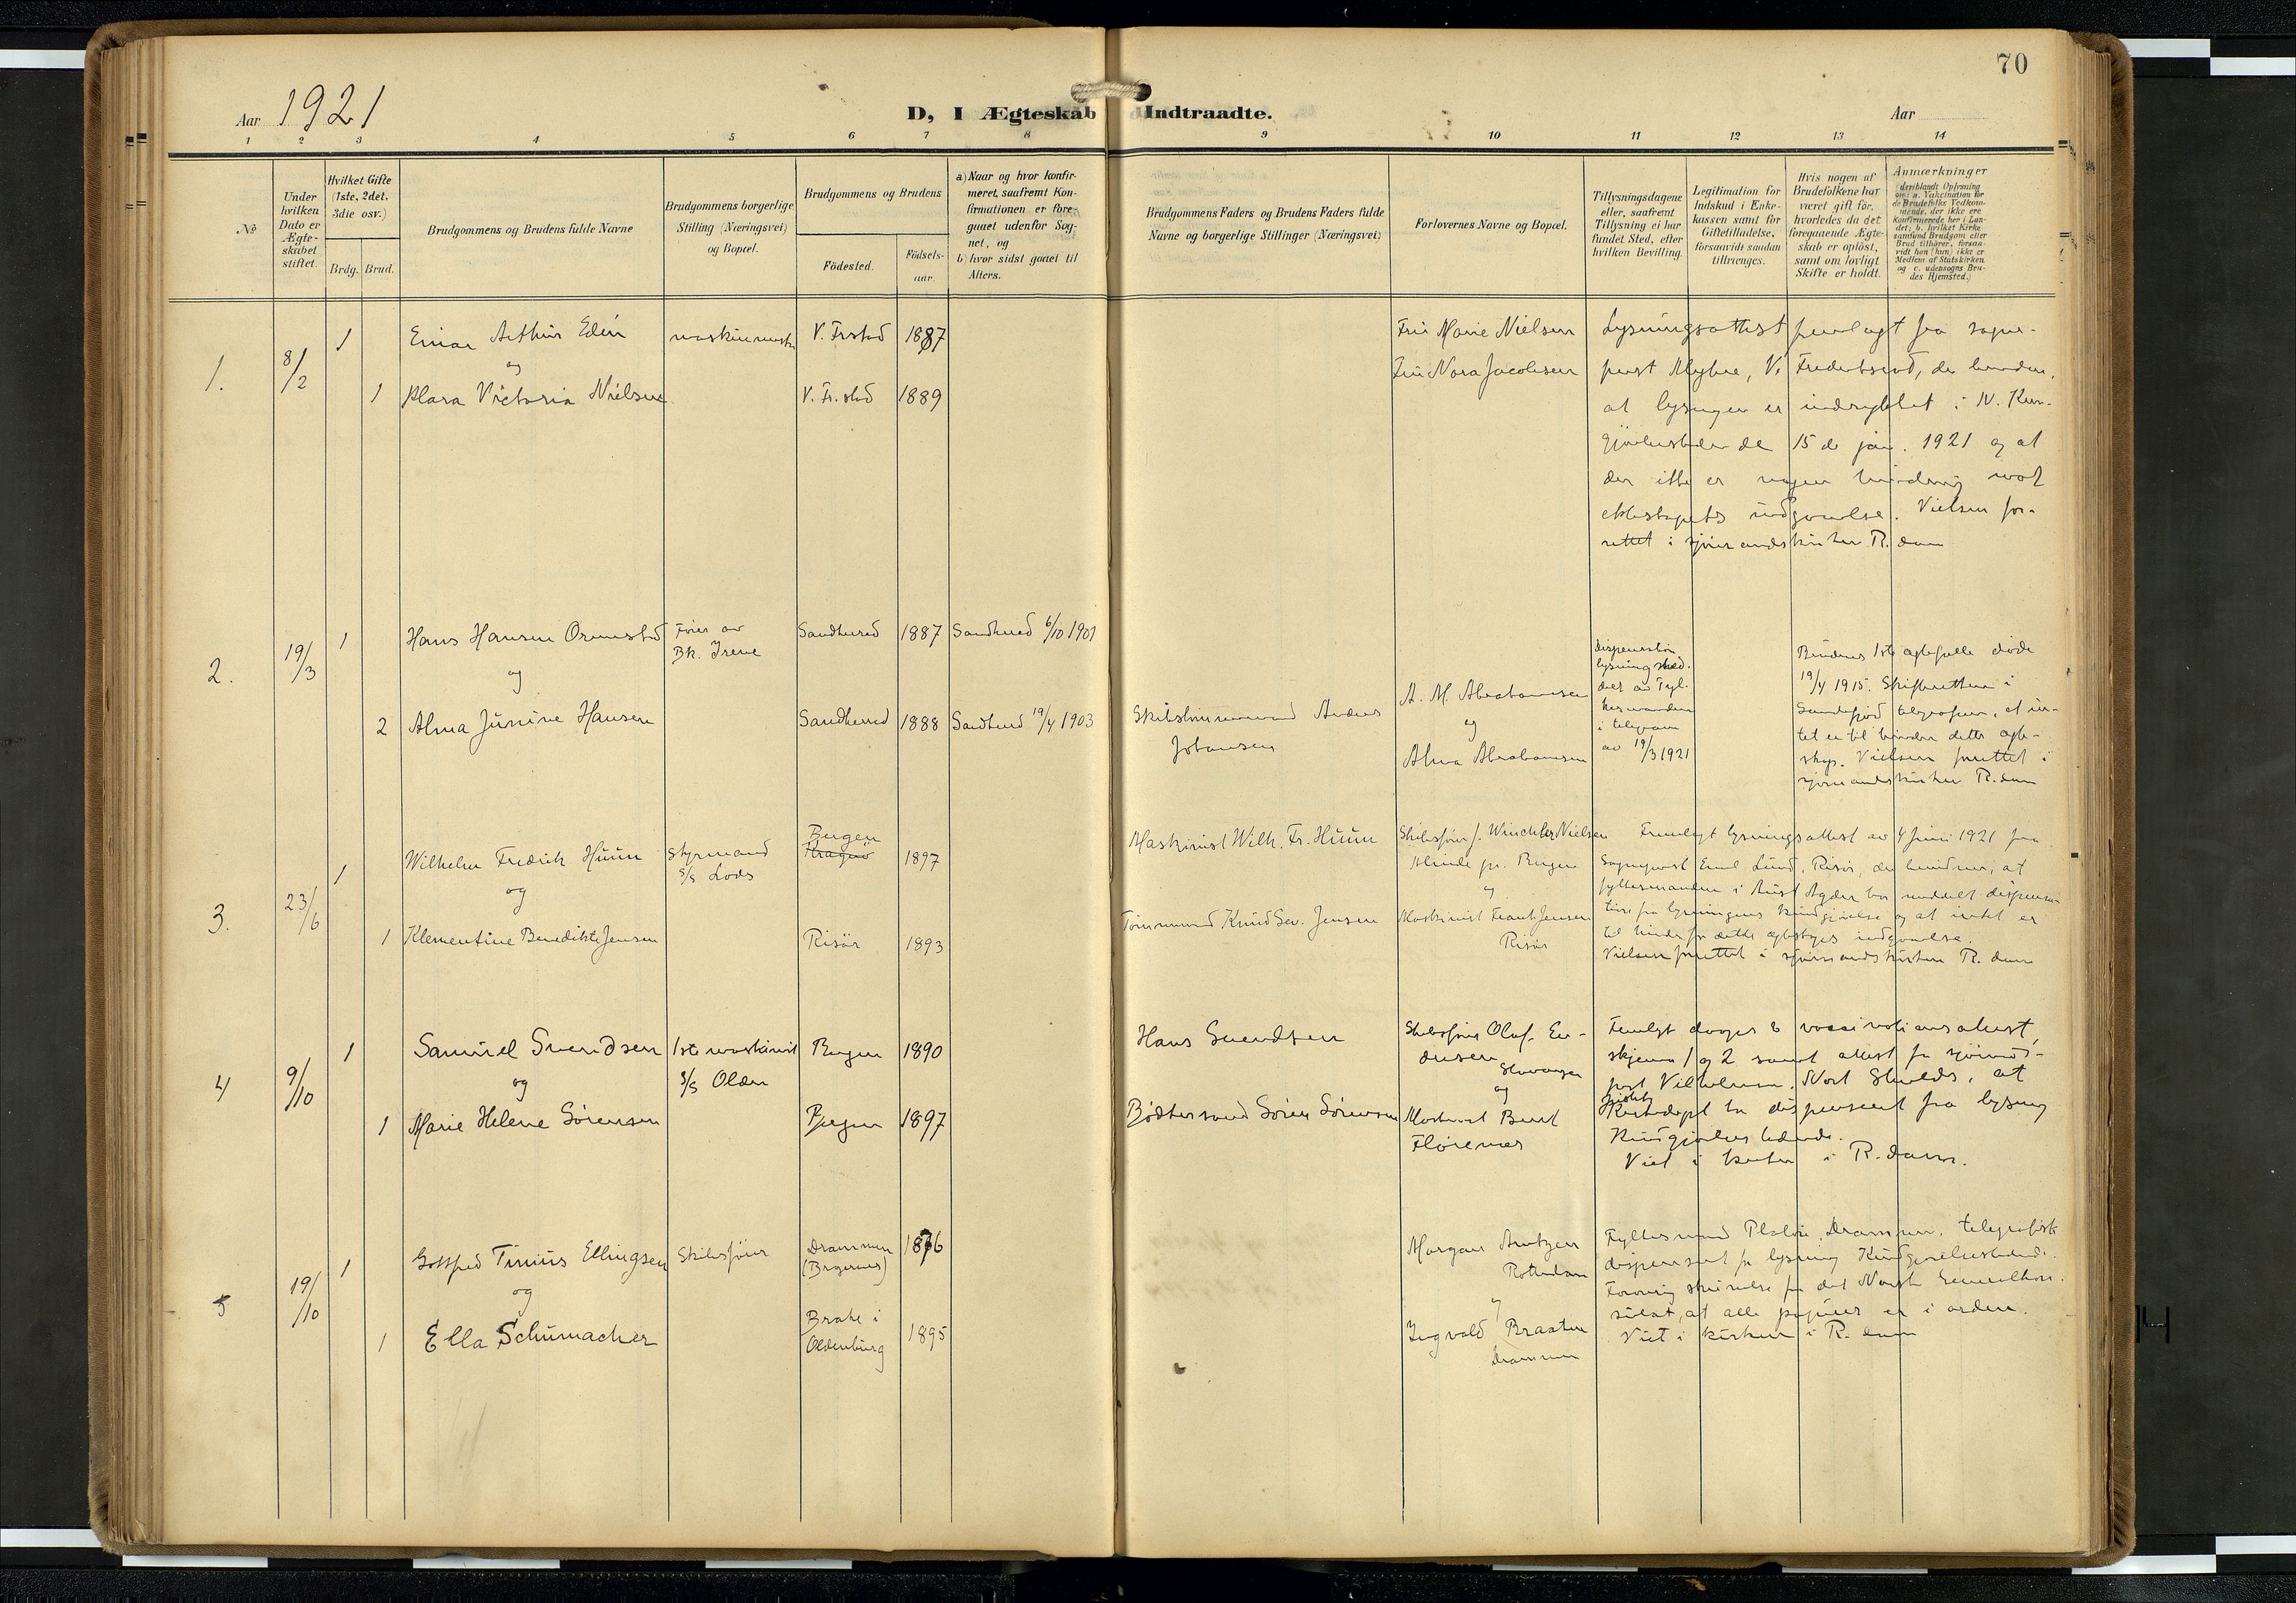 70
Aar 1921
D, I Ægteskab Indtraadte.
Aar
1 2 3 4 5 6 7 8 9 10 11 12 13 14
№
Under hvilken Dato er Ægteskabet stiftet.
Hvilket Gifte (1ste, 2det, 3die osv.)
Brdg. Brud.
Brudgommens og Brudens fulde Navne
Brudgommens borgerlige Stilling (Næringsvei) og Bopæl.
Brudgommens og Brudens
Fødested.
Fødselsaar.
a) Naar og hvor konfirmeret, saafremt Konfirmationen er foregaaet udenfor Sognet, og
b) hvor sidst gaaet til Alters.
Brudgommens Faders og Brudens Faders fulde Navne og borgerlige Stillinger (Næringsvei)
Forlovernes Navne og Bopæl.
Tillysningsdagene eller, saafremt Tillysning ei har fundet Sted, efter hvilken Bevilling.
Legitimation for Indskud i Enkekassen samt for Giftetilladelse, forsaavidt saadan tiltrænges.
Hvis nogen af Brudefolkene har været gift før, hvorledes da det foregaaende Ægteskab er opløst, samt om lovligt Skifte er holdt.
Anmærkninger (deriblandt Oplysning om: a. Vakcination for de Brudefolks Vedkommende, der ikke ere konfirmerede her i Landet; b. hvilket Kirkesamfund Brudgom eller Brud tilhører, forsaavidt han (hun) ikke er Medlem af Statskirken og c. udensogns Brudes Hjemsted.)
1. 8/2 1 Einar Arthur Edin maskinmester V. Frstad 1887
og
1 Klara Victoria Nielsen V. Fr.stad 1889
Fru Marie Nielsen
Fru Nora Jacobsen
Lysningsattest fremlagt fra sogneprest
Myhre, V. Fredrikstad, der
at lysningen er indrykket i N. Kundgjörelsestidende
15de jan. 1921 og at
der ikke er nogen hindring mod
ekteskapets indgaaelse. Vielsen forrettet
i sjømandskirken R.dam
2. 19/3 1 Hans Hansen Ormestad Fører av
Bk. Irene Sandherred 1887 Sandherred 6/10 1901
og
2 Alma Junine Hansen Sandherred 1888 Sandherred 19/4 1903
Skibstømmermand Anders
Johansen
A. M. Abrahamsen
og
Alma Abrahamsen
Dispensation
lysning
av Fylkesmanden
i telegram
av 19/3 1921
Brudens 1ste egtefelle døde
19/4 1915. Skifteretten i
Sandefjord telegraferer, at intet
er til hinder dette egteskap.
Vielsen forrettet i
sjømandskirken R.dam
3. 23/6 1 Wilhelm Fredrik Huun Styrmand
s/s Lods Bergen
Kragerø 1897
og
1 Klementine Benedikte Jensen Risör 1893
Maskinist Wilh. Fr. Huun
Tømmermand Knud Sev. Jensen
Skibsfører J. Winckler Nielsen
pr. Bergen
og
Maskinist Frank Jensen
Risör
Fremlagt lysningsattest av 4 Juni 1921 fra
Sogneprest Emil Lund, Risör, der
at
fylkesmanden i Aust Agder har meddelt dispensation
fra lysningens kundgjörelse og at intet er
til hinder for dette egteskaps indgaaelse.
Vielsen forrettet i sjømandskirken R.dam
4 9/10 1 Samuel Svendsen 1ste maskinist
S/S Olden Bergen 1890
og
1 Marie Helene Sörensen Bergen 1897
Hans Svendsen
Bødtersvend Sören Sörensen
Skibsfører Oluf Endresen
Stavanger
og
Maskinist Bent
Florenes
Fremlagt daaps & vaccinationsattest,
skjema 1 og 2 samt attest fra sjømandsprest
Vilhelmsen, North Shields, at
Justits
departementet har dispensert fra lysning
Kundgjörelsestidende.
Viet i kirken i R.dam.
5 19/10 1 Gottfred Tinius Ellingsen Skibsfører Drammen
(Bragernes) 1876
og
1 Ella Schumacher Brake i
Oldenburg 1895
Morgan Arntzen
Rotterdam
og
Ingvald Braaten
Drammen
Fylkesmand Platou, Drammen, telegrafisk
dispensert fra lysning Kundgjörelsestidende.
skrivelse fra det Norske Generalkonsulat,
at alle papirer er i orden.
Viet i kirken i R.dam